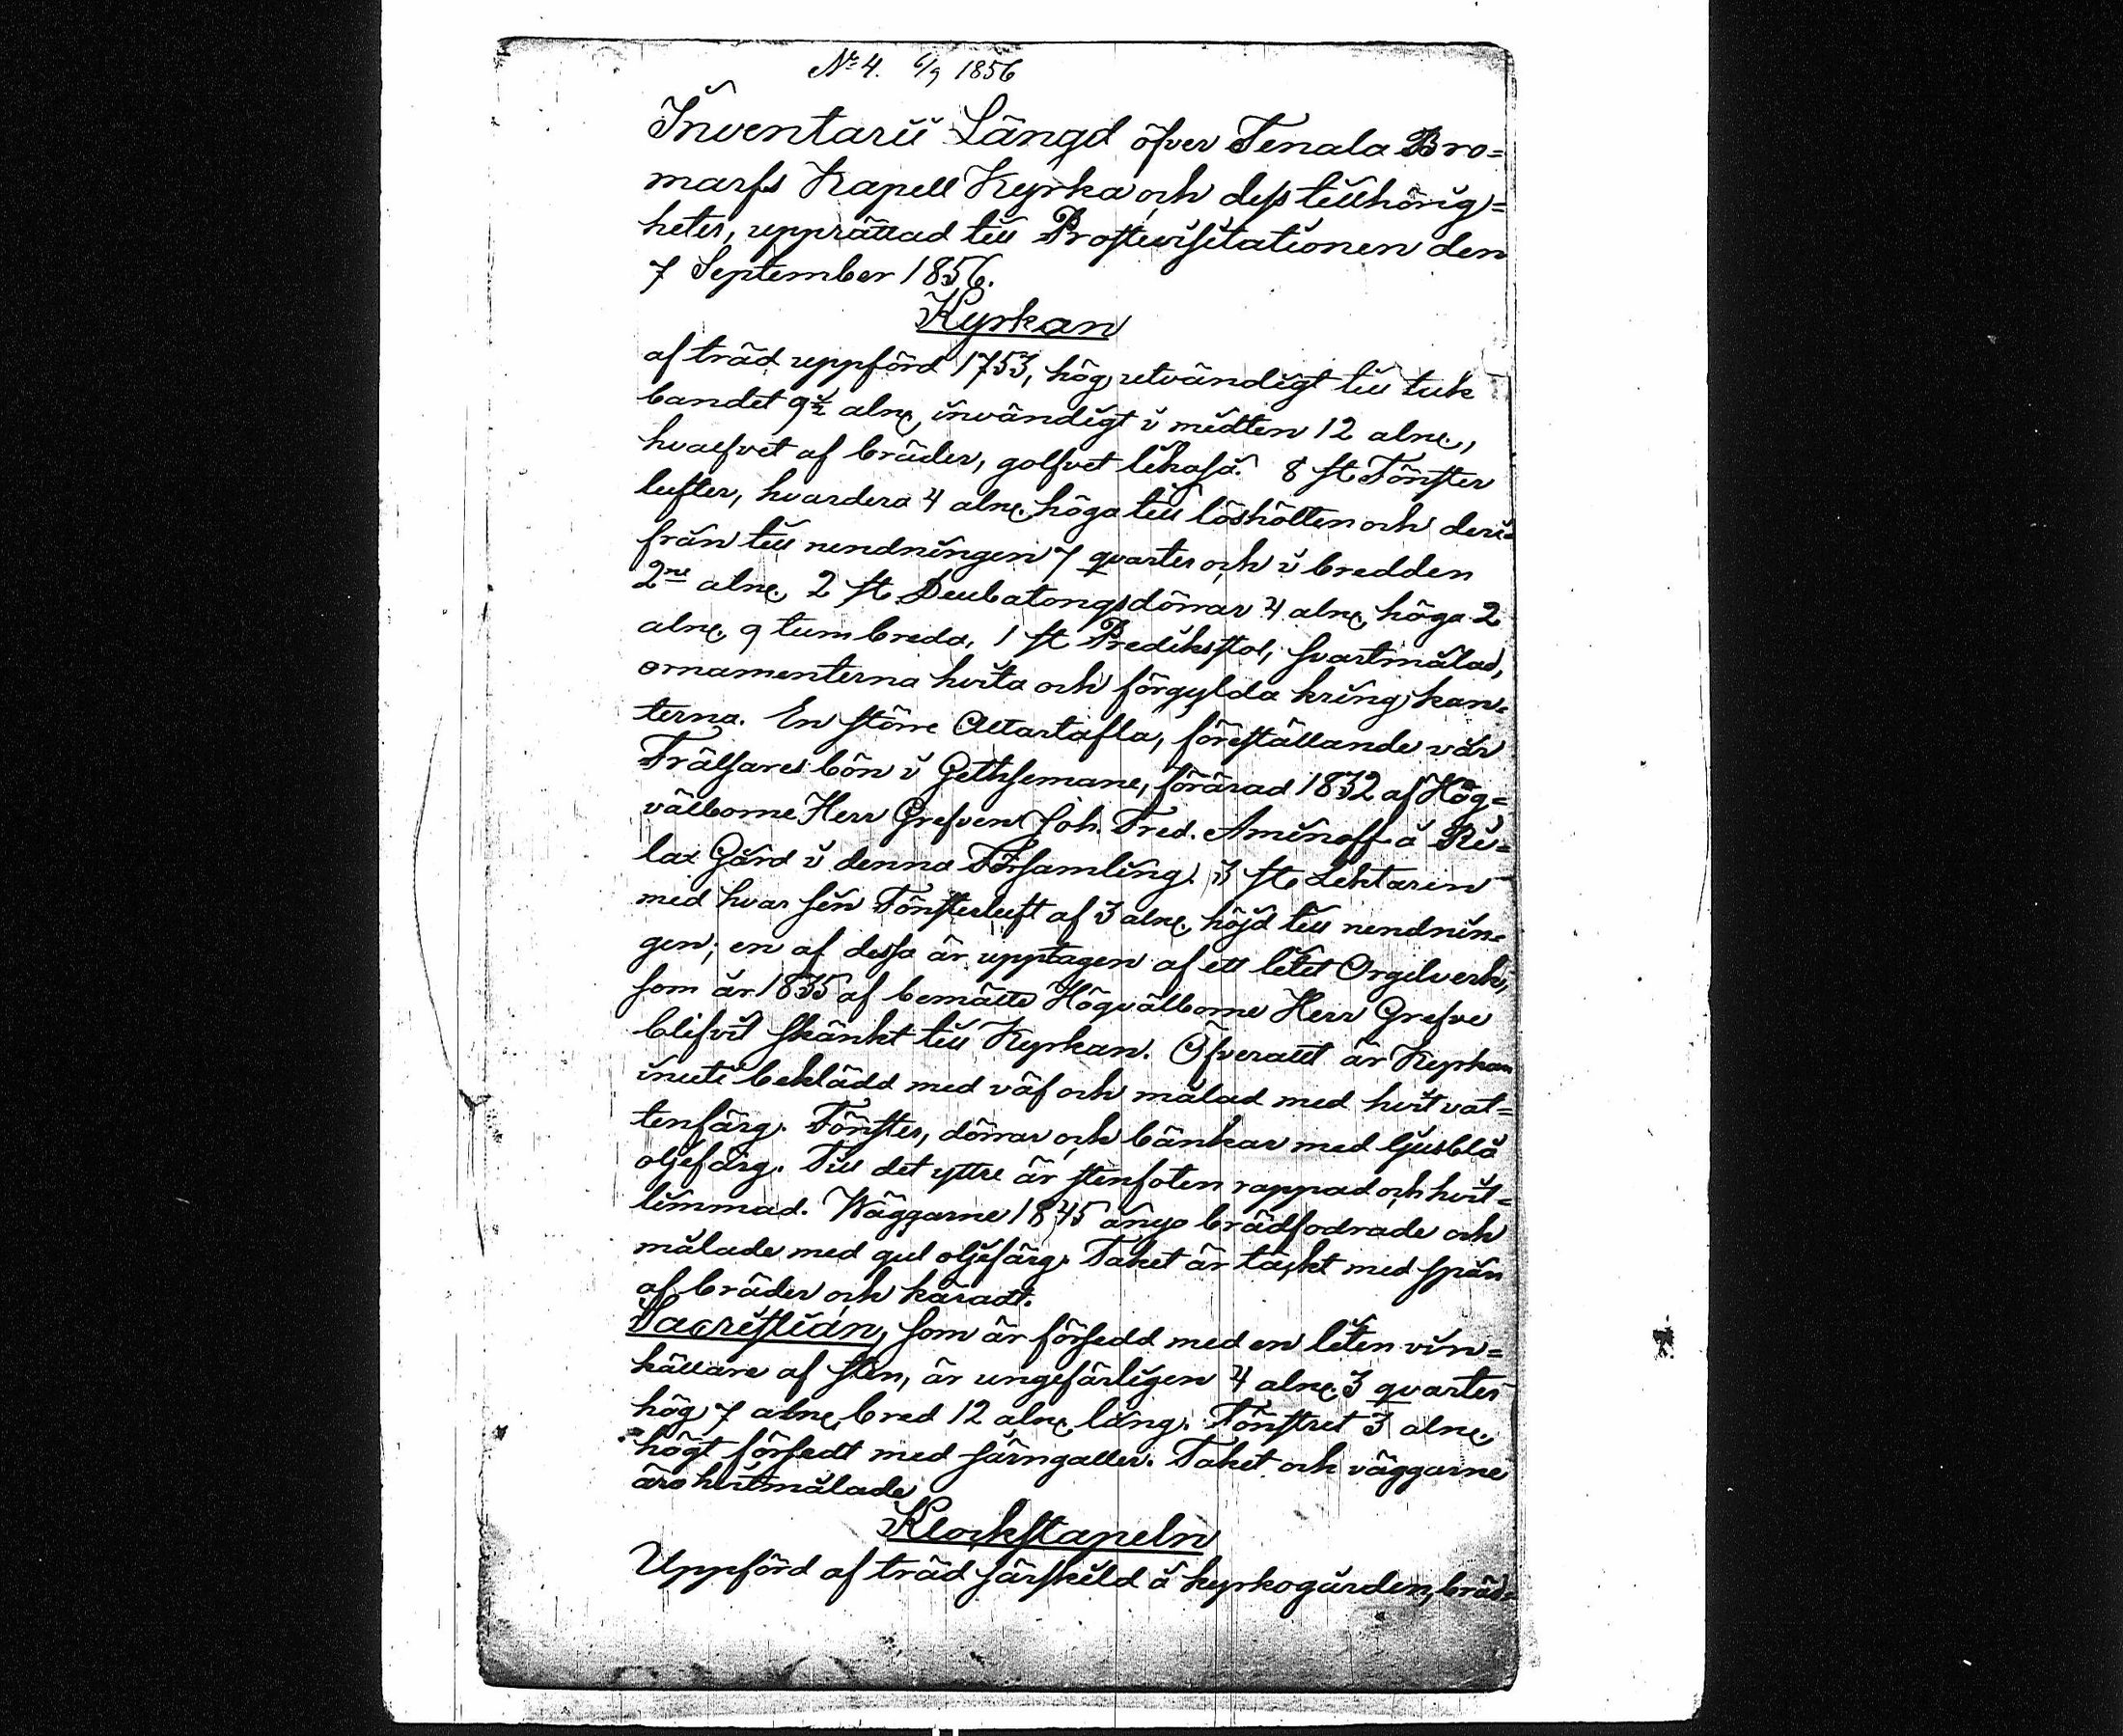 No 4. 6/9 1856
Inventarii Längd öfver Tenala Bro=
marfs Kapell Kyrka och dess tillhörig=
heter, upprättad till Prostvisitationen den
7 September 1856.
Kyrkan
af träd uppförd 1753, hög utvändigt till tak
bandet 9½ alnr, invändigt i midten 12 alnr,
hvalfvet af bräder, golfvet likaså. 8 st. Fönster
lufter, hvardera 4 alnr höga till löshölten och deri=
från till rundningen 7 qvarter och i bredden
2ne alnr. 2 st. Dubatongsdörrar 4 alnr höga 2
alnr. 9 tum breda. 1 st Predikstol, svartmålad,
ornamenterna hvita och förgylda kring kan=
terna. En större Altartafla, föreställande vår
Frälsares bön i Gethsemane, förärad 1832 af Hög=
välborne Herr Grefven Joh. Fred. Aminoff å Ri=
lax Gård i denna Församling. 3 st. Lektarin
med hvar sin Fönsterluft af 3 alnr. höjd till rundnin=
gen; en af dessa är upptagen af ett litet Orgelverk,
som år 1835 af bemälte Högvälborne Herr Grefve
blifvit skänkt till Kyrkan. Öfverallt är Kyrkan
inuti beklädd med väf och målad med hvit vat=
tenfärg. Fönster, dörrar och bänkar med ljusblå
oljefärg. Till det yttre är stenfoten rappad och hvit=
limmad. Wäggarne 1845 ånyo brädfodrade och
målade med gul oljefärg. Taket är täckt med spån
af bräder och käradt.
Sacristian, som är försedd med en liten vin=
källare af sten, är ungefärligen 4 alnr. 3 qvarter
hög 7 alnr bred 12 alnr. lång. Fönstret 3 alnr.
högt försedt med järngaller. Taket och väggarne
äro hvitmålade
Klockstapeln
Uppförd af träd särskild å kyrkogården, bräd=